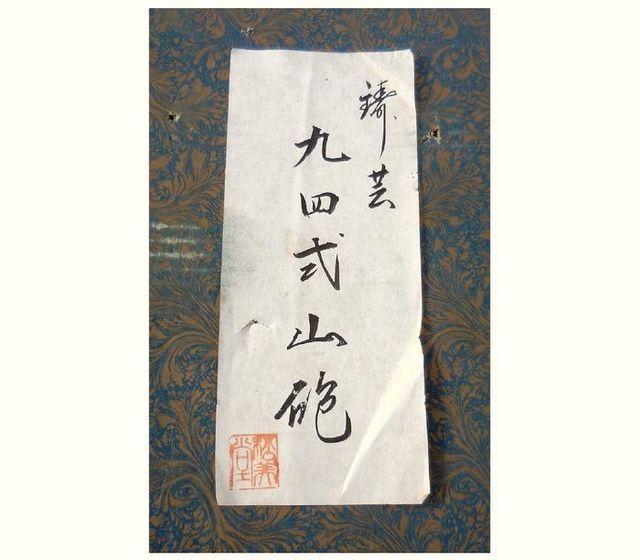 鋳芸
九四式山砲